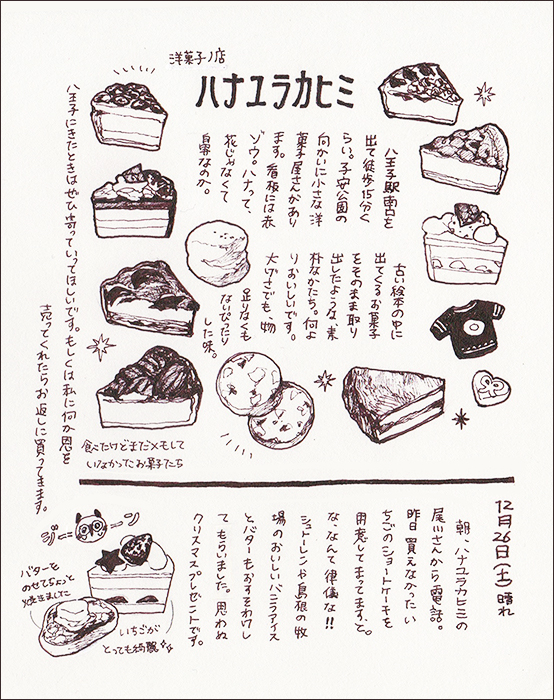 洋菓子ノ店
ハナユラカヒミ
八王子駅南口を
出て徒歩15分く
らい。子安公園の
向かいに小さな洋
菓子屋さんがあり
ます。看板には赤
ゾウ。ハナって、
花じゃなくて
鼻なのか。
古い絵本の中に
出てくるお菓子
をそのまま取り
出したような、素
朴なかたち。何よ
りおいしいです。
大げさでも、物
足りなくも
ないぴったり
した味。
八王子にきたときはぜひ寄っていってほしいです。もしくは私に何か恩を
売ってくれたらお返しに買ってきます。
食べたけどまだメモして
いなかったお菓子たち
12月26日(土)晴れ
朝、ハナユラカヒミの
尾川さんから電話。
昨日買えなかったい
ちごのショートケーキを
用意してまってます、と。
な、なんて律儀な!!
シュトーレンや島根の牧
場のおいしいバニラアイス
とバターもおすそわけし
てもらいました。思わぬ
クリスマスプレゼントです。
ジーーン
バターを
のせてちょっと
焼きました
いちごが
とっても綺麗